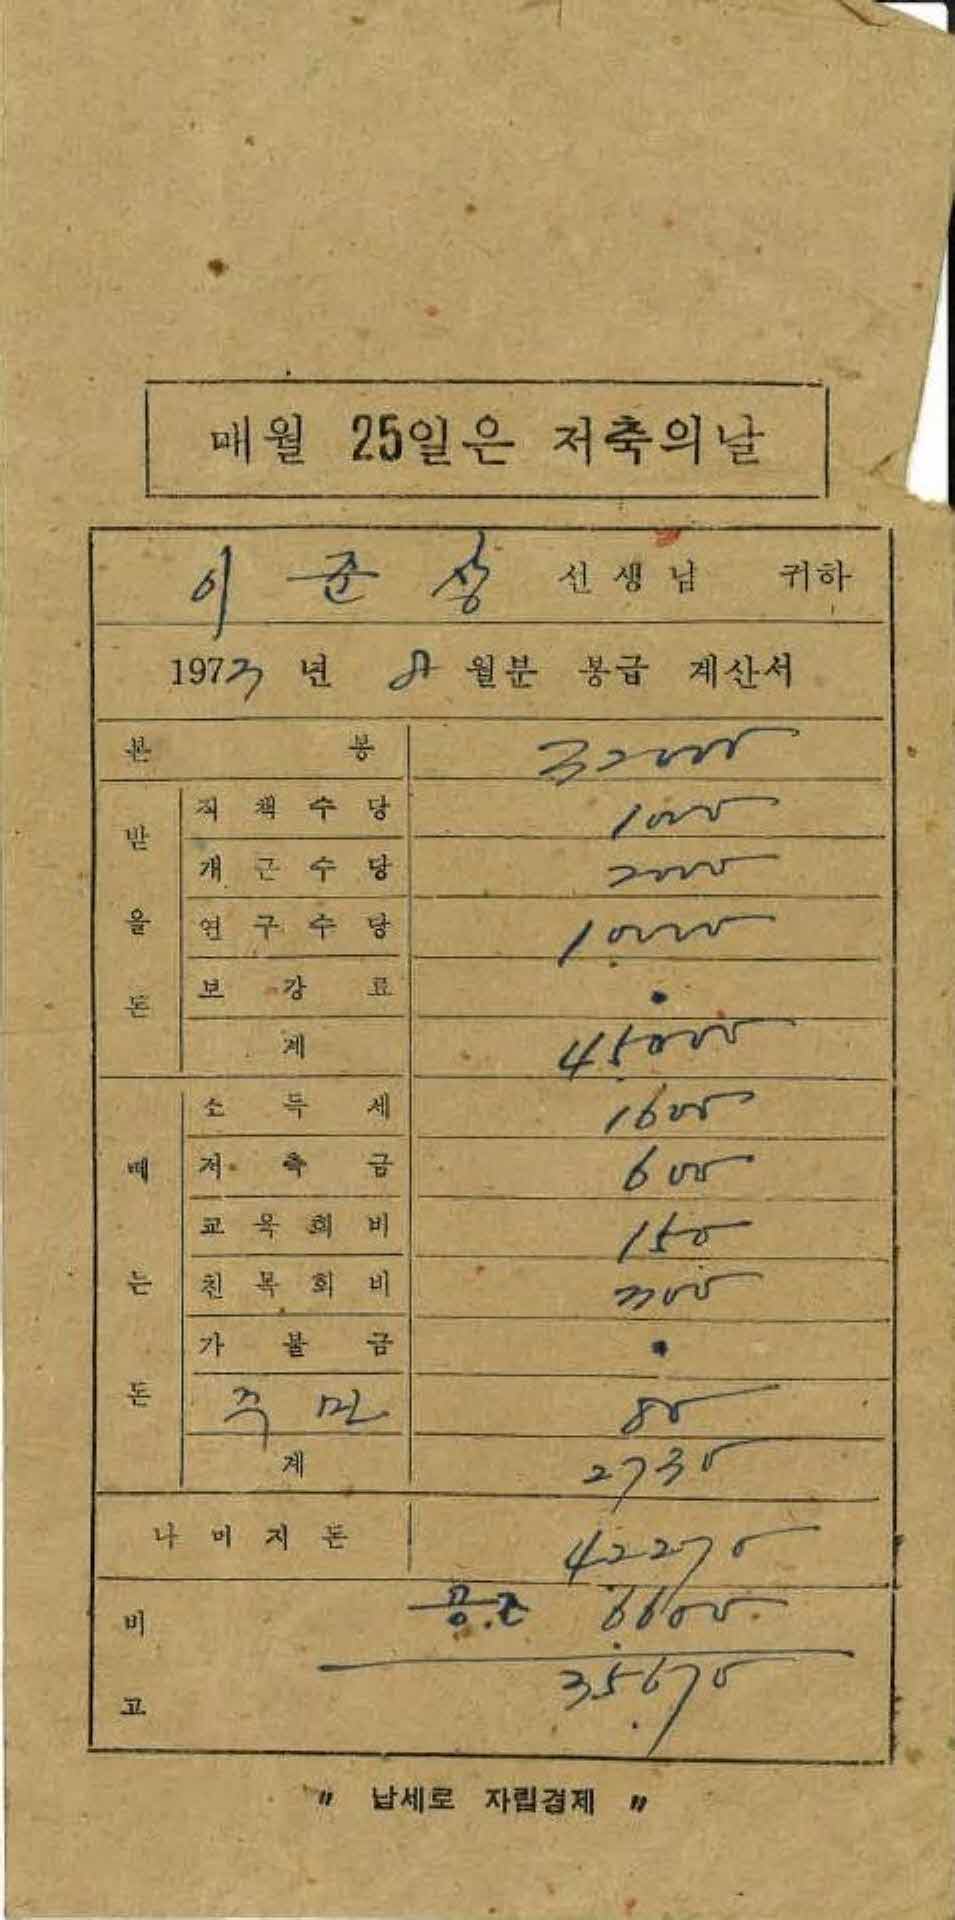 매월 25일은 저축의날
이준상 선생님 귀하
1973년 8월분 봉급 계산서
본봉 32000
받을돈
직책수당 1000
개근수당 2000
연구수당 10000
보강료 .
계 45000
떼는돈
소득세 1600
저축금 600
교육회비 150
친목회비 300
가불금 .
주민 80
계 2730
나머지돈 42270
비고
공조 6600
35670
" 납세로 자립경제 "